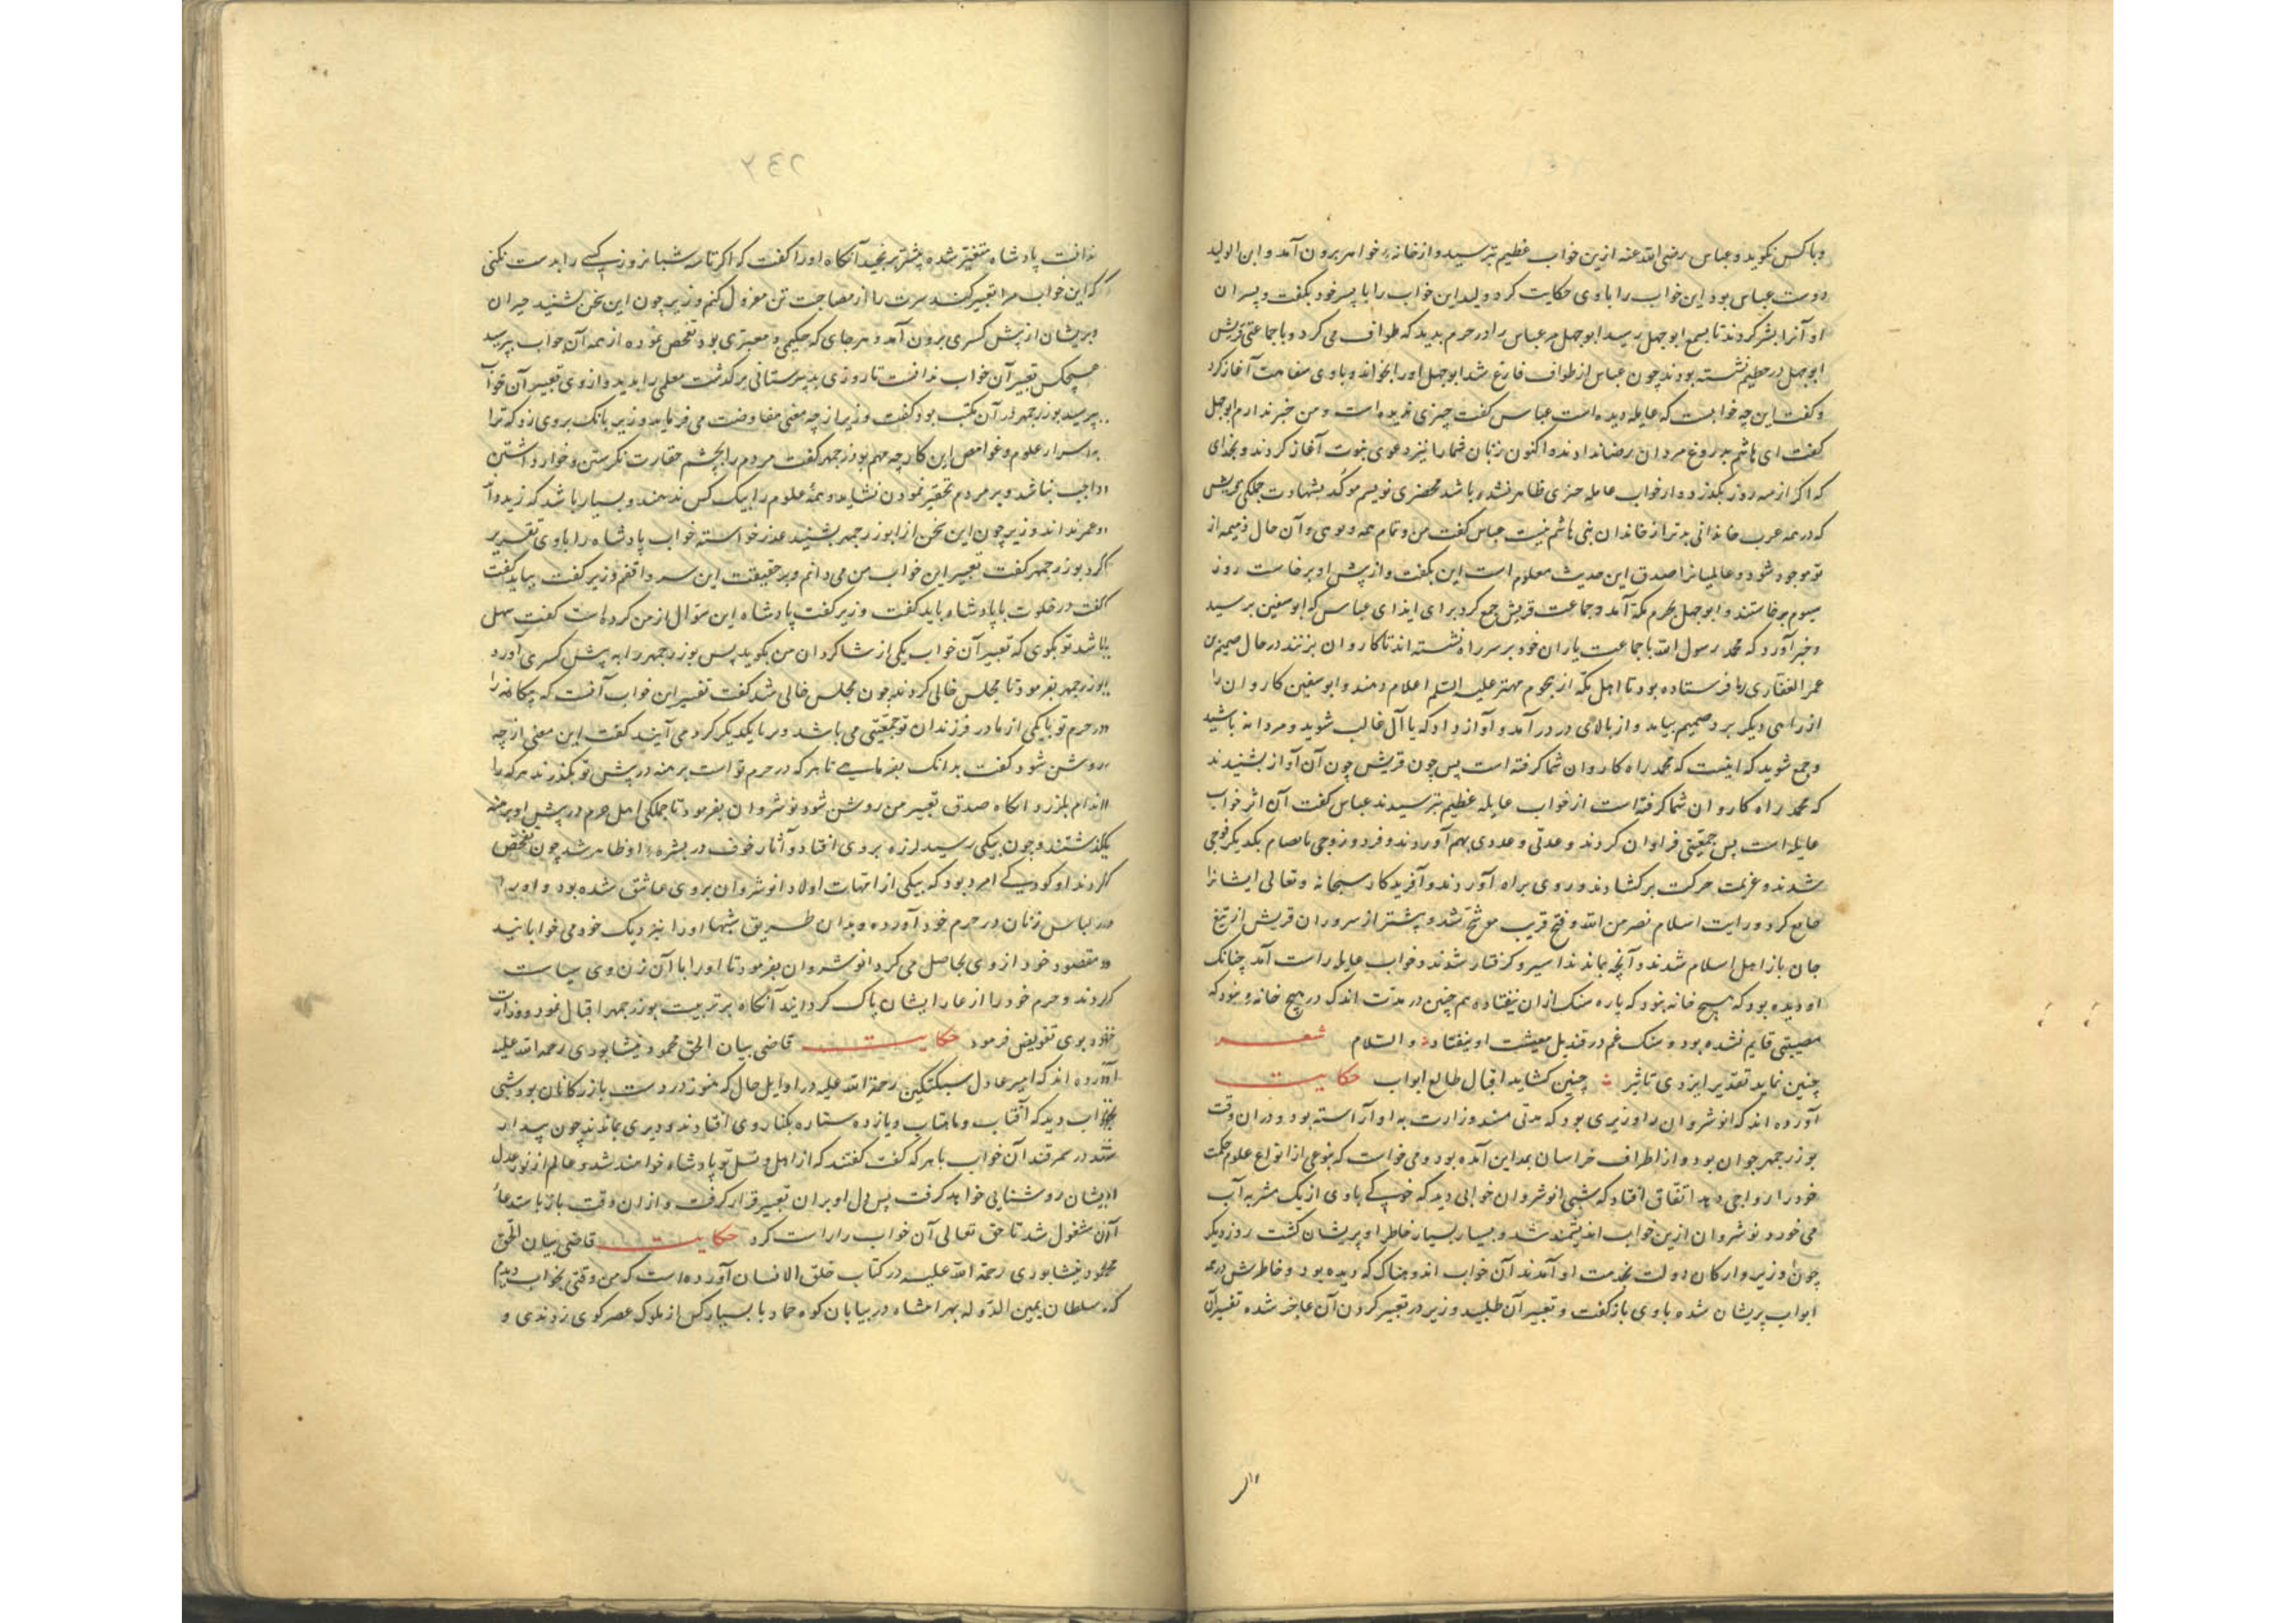 وباکس نکوید وعباس رضی الله عنه ازین خواب عظیم بترسید واز خانهٔ خواهر برون آمد و ابن الولید
دوست عباس بود این خواب را باوی حکایت کرد ولید این خواب را با پسر خود بکفت و پسران
او آنرا نشر کردند تا بسمع ابوجهل رسید ابوجهل مر عباس را در حرم بدید که طواف می کرد و با جماعتی قریش
ابوجهل در حطیم نشسته بودند چون عباس از طواف فارغ شد ابوجهل اورا بخواند و باوی سفاهت آغاز کرد
و کفت این چه خوابست که عایله دیده است عباس کفت چیزی ندیده است و من خبر ندارم ابوجهل
کفت ای هاشم بدروغ مردان رضا ندادند و اکنون زنان شما را نیز دعوی نبوت آغاز کردند و بخدای
که اکر از سه روز بکذرد و از خواب عایله چیزی ظاهر نشده باشد محضری نویسم موکد بشهادت جملکی قریش
که در همه عرب خاندانی بدتر از خاندان بنی هاشم نیست عباس کفت من و تمام عمه و آن حال ذمیمه از
تو موجود شود و عالمیانرا صدق این حدیث معلوم است این بکفت و از پیش او برخاست روز
سیوم برخاستند و ابوجهل بحرم مکه آمد و جماعت قریش جمع کرد برای ایذای عباس که ابوسفین برسید
و خبر آورد که محمد رسول الله با جماعت یاران خود بر سر راه نشسته اند تا کاروان بزنند در حال ضمیم بن
عمر الغفاری را فرستاده بود تا اهل مکه از هجوم مهتر علیه السلم اعلام دهند و ابوسفین کاروان را
از راهی دیکر برد ضمیم بیامد و از بالای در درآمد و آواز داد که یا آل غالب شوید و مردانه باشید
و جمع شوید که اینست که محمد راه کاروان شما کرفته است پس چون قریش چون آن آواز بشنیدند
که محمد راه کاروان شما کرفته است از خواب عایله عظیم بترسیدند عباس کفت آن اثر خواب
عایله است پس جمعیتی فراوان کردند و عدتی و عددی بهم آوردند و فرد و زوجی با مصام یکدیکر فوجی
شدند و عزیمت حرکت برکشادند و روی براه آوردند و آفریدکار سبحانه و تعالی ایشانرا
جامع کرد و رایت اسلام نصر من الله و فتح قریب موشح شد و پیشتر از سروران قریش از تیغ
جان باز اهل اسلام شدند و آنچه بماندند اسیر و کرفتار شدند و خواب عایله راست آمد چنانک
او دیده بود که هیچ خانه نبود که پاره سنک ازان نیفتاده هم چنین در مدت اندک در هیچ خانهٔ نبود که
مصیبتی قایم نشده بود و سنک غم در قندیل معیشت او نیفتاد و السلام شعر
چنین نماید تقدیر ایزدی تاثیر چنین کشاید اقبال طالع ابواب حکایت
آورده اند که انوشروان را وزیری بود که مدتی مسند وزارت به او آراسته بود و دران وقت
بوزرجمهر جوان بود و از اطراف خراسان بمداین آمده بود و می خواست که بنوعی از انواع علوم حکمت
خود را رواجی دهد اتفاق افتاد که شبی انوشروان خوابی دید که خوکی باوی از یک مشربه آب
می خورد و نوشروان ازین خواب اندیشمند شد و بسیار بسیار خاطر او پریشان کشت روز دیکر
چون وزیر و ارکان دولت بخدمت او آمدند آن خواب اندوهناک که دیده بود و خاطرش در همه
ابواب پریشان شده باوی بازکفت و تعبیر آن طلبید وزیر در تعبیر کردن آن عاجز شده تفسیر آن
ندانست پادشاه متغیر شده پیشتر برنجید آنکاه اورا کفت که اکر تا سه شبانروز کسی را بدست نکنی
که این خواب مرا تعبیر کند سرت را از مصاحبت تن معزول کنم وزیر چون این سخن بشنید حیران
و پریشان از پیش کسری برون آمد و هر جای که حکیمی و معبری بود تفحص نموده از همه آن خواب بپرسید
هیچکس تعبیر آن خواب ندانست تا روزی بدبیرستانی برکذشت معلمی را بدید و ازوی تعبیر آن خواب
بپرسید بوزرجمهر در آن مکتب بود کفت وزیر از چه معنی مفاوضت می فرماید وزیر بانک بروی زد که ترا
به اسرار علوم و غوامض این کار چه مهم بوزرجمهر کفت مردم را بچشم حقارت نکرستن و خوار داشتن
واجب نباشد و بر مردم تحقیر نمودن نشاید و همه علوم را بیک کس ندهند و بسیار باشد که زید داند
و عمر نداند وزیر چون این سخن از ابوزرجمهر بشنید عذر خواسته خواب پادشاه را باوی تقریر
کرد بوزرجمهر کفت تعبیر این خواب من می دانم و بر حقیقت این سر واقفم وزیر کفت بباید کفت
کفت در خلوت با پادشاه باید کفت وزیر کفت پادشاه این سوال از من کرده است کفت سهل
باشد تو بکوی که تعبیر آن خواب یکی از شاکردان من بکوید پس بوزرجمهر را به پیش کسری آورد
بوزرجمهر بفرمود تا مجلس خالی کردند چون مجلس خالی شد کفت تفسیر این خواب آنست که بیکانه را
در حرم تو با یکی از مادر فرزندان تو جمعیتی می باشد و هر با یکدیکر کرد می آیند کفت این معنی از چه
روشن شود کفت بدانک بفرمایی تا هر که در حرم تو است برهنه در پیش تو بکذرند هر که را
اندام بلرزد آنکاه صدق تعبیر من روشن شود نوشروان بفرمود تا جملکی اهل حرم در پیش او برهنه
بکذشتند و چون بیکی رسید لرزه بروی افتاد و آثار خوف در بشرهٔ او ظاهر شد چون تفحص
کردند او کودکی امرد بود که یکی از امهات اولاد انوشروان بروی عاشق شده بود و اورا
در لباس زنان در حرم خود آورده و بدان طریق شبها اورا نزدیک خود می خوابانید
و مقصود خود ازوی بحاصل می کرد انوشروان بفرمود تا اورا با آن زن وی سیاست
کردند و حرم خود را از عار ایشان پاک کردانید آنکاه بر تربیت بوزرجمهر اقبال نمود و وزارت
خود بوی تفویض فرمود حکایت قاضی بیان الحق محمود نیشابوری رحمه الله علیه
آورده اند که امیر عادل سبکتکین رحمة الله علیه در اوایل حال که هنوز در دست بازرکانان بود شبی
بخواب دید که آفتاب و ماهتاب و یازده ستاره بکنار وی افتادند و دیری بماندند چون بیدار
شد در سمرقند آن خواب با هر که کفت کفتند که از اهل و نسل تو پادشاه خواهند شد و عالم از نور عدل
ایشان روشنایی خواهد کرفت پس دل او بران تعبیر قرار کرفت و ازان وقت باز باستدعاء
آن مشغول شد تا حق تعالی آن خواب را راست کرد حکایت قاضی بیان الحق
محمود نیشابوری رحمة الله علیه در کتاب خلق الانسان آورده است که من وقتی بخواب دیدم
که سلطان یمین الدوله بهرامشاه در بیابان کوه خماد با بسیار کس از ملوک عصر کوی زدندی و